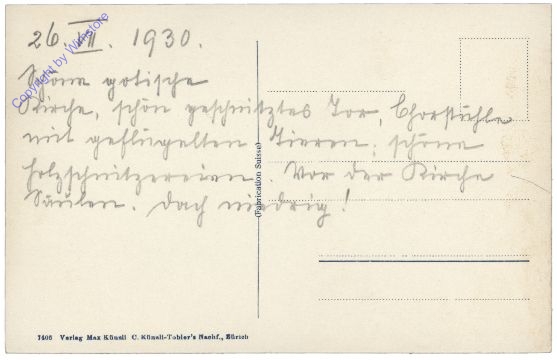 26. VII. 1930.
Schöne gotische
Kirche, schön geschnitztes Tor, Chorstühle
mit geflügelten Tieren, schöne
Holzschnitzereien. Vor der Kirche
Säulen. Dach niedrig!
(Fabrication Suisse)
7406 Verlag Max Künzli C. Künzli-Tobler's Nachf., Zürich
Copyright by Wimstore